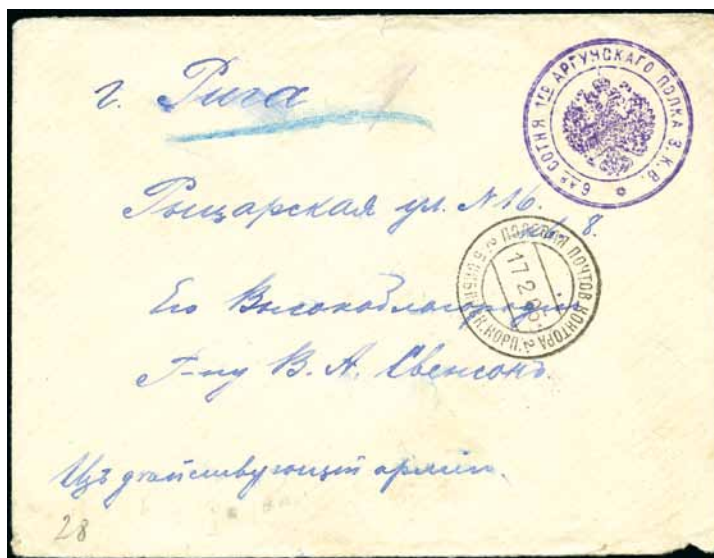 г. Рига
6ая СОТНЯ 1го АРГУНСКАГО ПОЛКА З. К. В.
Рыцарская ул. N 16.
8.
ПОЛЕВАЯ ПОЧТОВ. КОНТОРА
17.2.05
Его Высокоблагородию
Г-ну В. А. Свенсонъ.
Изъ действующей армiи.
28